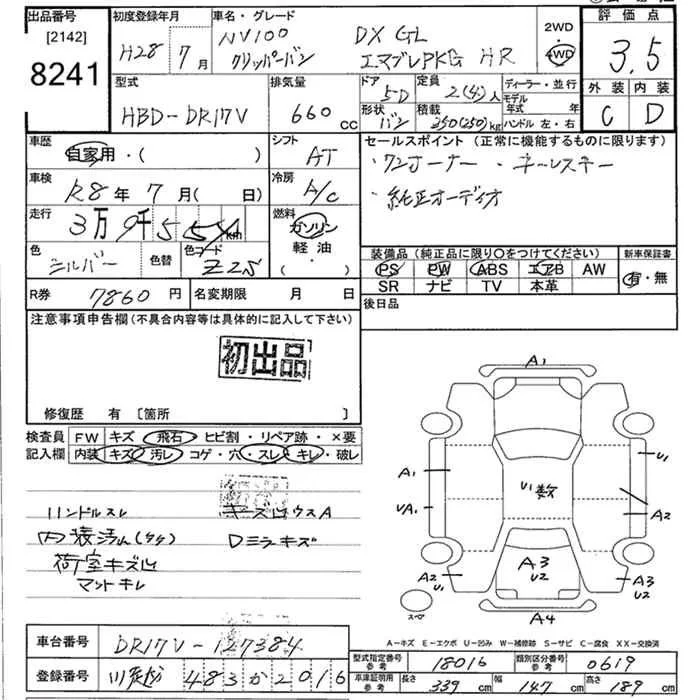 出品番号
[2142]
8241
初度登録年月
H28 7月
車名・グレード
NV100 DX GL
クリッパーバン エマブレPKG HR
2WD
・
4WD
評価点
3.5
外装 内装
C D
型式
HBD-DR17V
排気量
660 cc
ドア
5D
形状
バン
定員
2(4)人
積載
350(250)kg
ディーラー・並行
モデル年式 年
ハンドル 左・右
車歴
自家用・( )
シフト
AT
セールスポイント(正常に機能するものに限ります)
・ワンオーナー ・キーレスキー
・純正オーディオ
車検
R8年7月( 日)
冷房
A/C
走行
3万9千55 km
燃料
ガソリン
軽油・
( )
色
シルバー
色替
色コード
Z2S
装備品(純正品に限り○をつけてください)
PS PW ABS エアB AW
SR ナビ TV 本革
新車保証書
有・無
R券
7860円
名変期限 月 日
後日品
注意事項申告欄(不具合内容等は具体的に記入して下さい)
初出品
修復歴 有 [箇所 ]
検査員記入欄
FW キズ・飛石・ヒビ割・リペア跡・×要
内装 キズ・汚レ・コゲ・穴・スレ・キレ・破レ
ハンドルスレ キーズハウスA
内装汚れ(シシ) Dミラキズ
荷室キズ凹
マットキレ
A1
A1
UA1
U1数
U1
A2
A2
U1
A3
U2
A3
U2
A4
スペア
A-キズ E-エクボ U-凹み W-補修跡 S-サビ C-腐食 XX-交換済
車台番号
DR17V-127384
登録番号
川越 483か2016
型式指定番号
参考
18016
類別区分番号
参考
0619
車庫証明用
参考
長さ 339 cm 幅 147 cm 高さ 189 cm